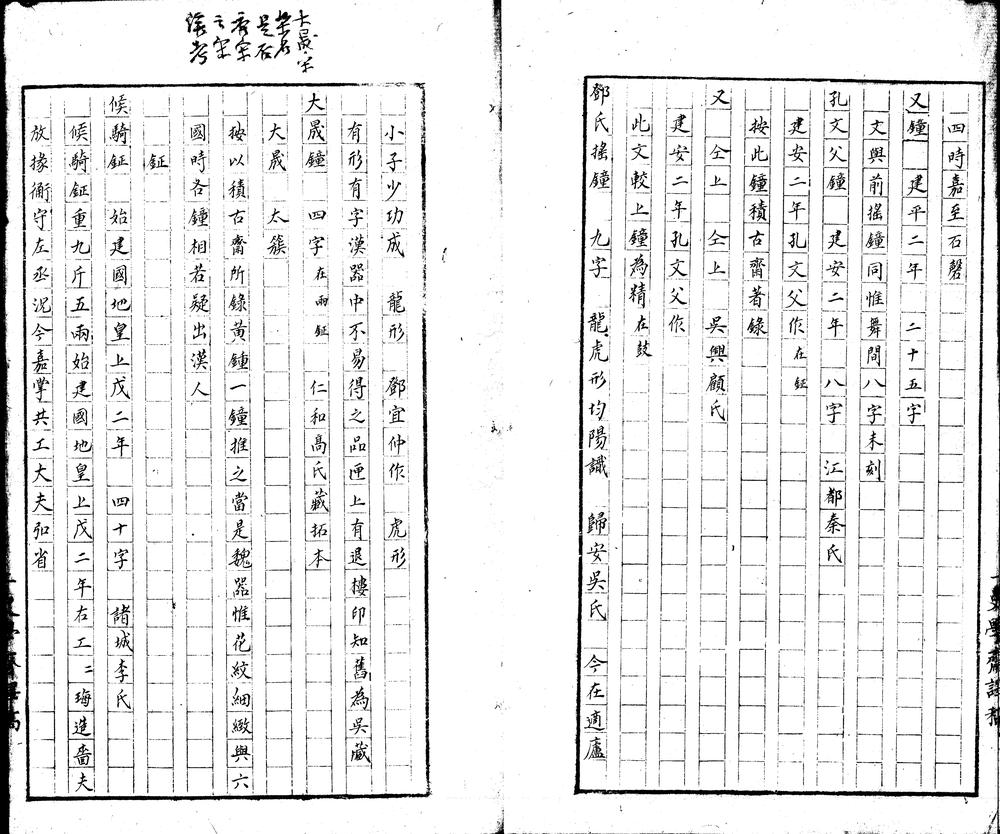 四時嘉至石磬
又鐘 建平二年 二十五字
文與前搖鐘同惟舞間八字未刻
孔文父鐘 建安二年 八字 江都秦氏
建安二年孔文父作在鉦
按此鐘積古齋著錄
又 仝上 仝上 吳興顧氏
建安二年孔文父作
此文較上鐘為精在鼓
鄧氏搖鐘 九字 龍虎形均陽識 歸安吳氏 今在適廬
大晟
樂名
是否
宋
待考
小子少功成 龍形 鄧宜仲作 虎形
有形有字漢器中不易得之品匣上有退樓印知舊為吳藏
大晟鐘 四字在兩鉦 仁和高氏藏拓本
大晟 太簇
按以積古齋所錄黃鍾一鐘推之當是魏器惟花紋細緻與六
國時各鐘相若疑出漢人
鉦
候騎鉦 始建國地皇上戊二年 四十字 諸城李氏
候騎鉦重九斤五兩始建國地皇上戊二年右工二造嗇夫
放掾衞守左丞況今嘉掌共工大夫弘省